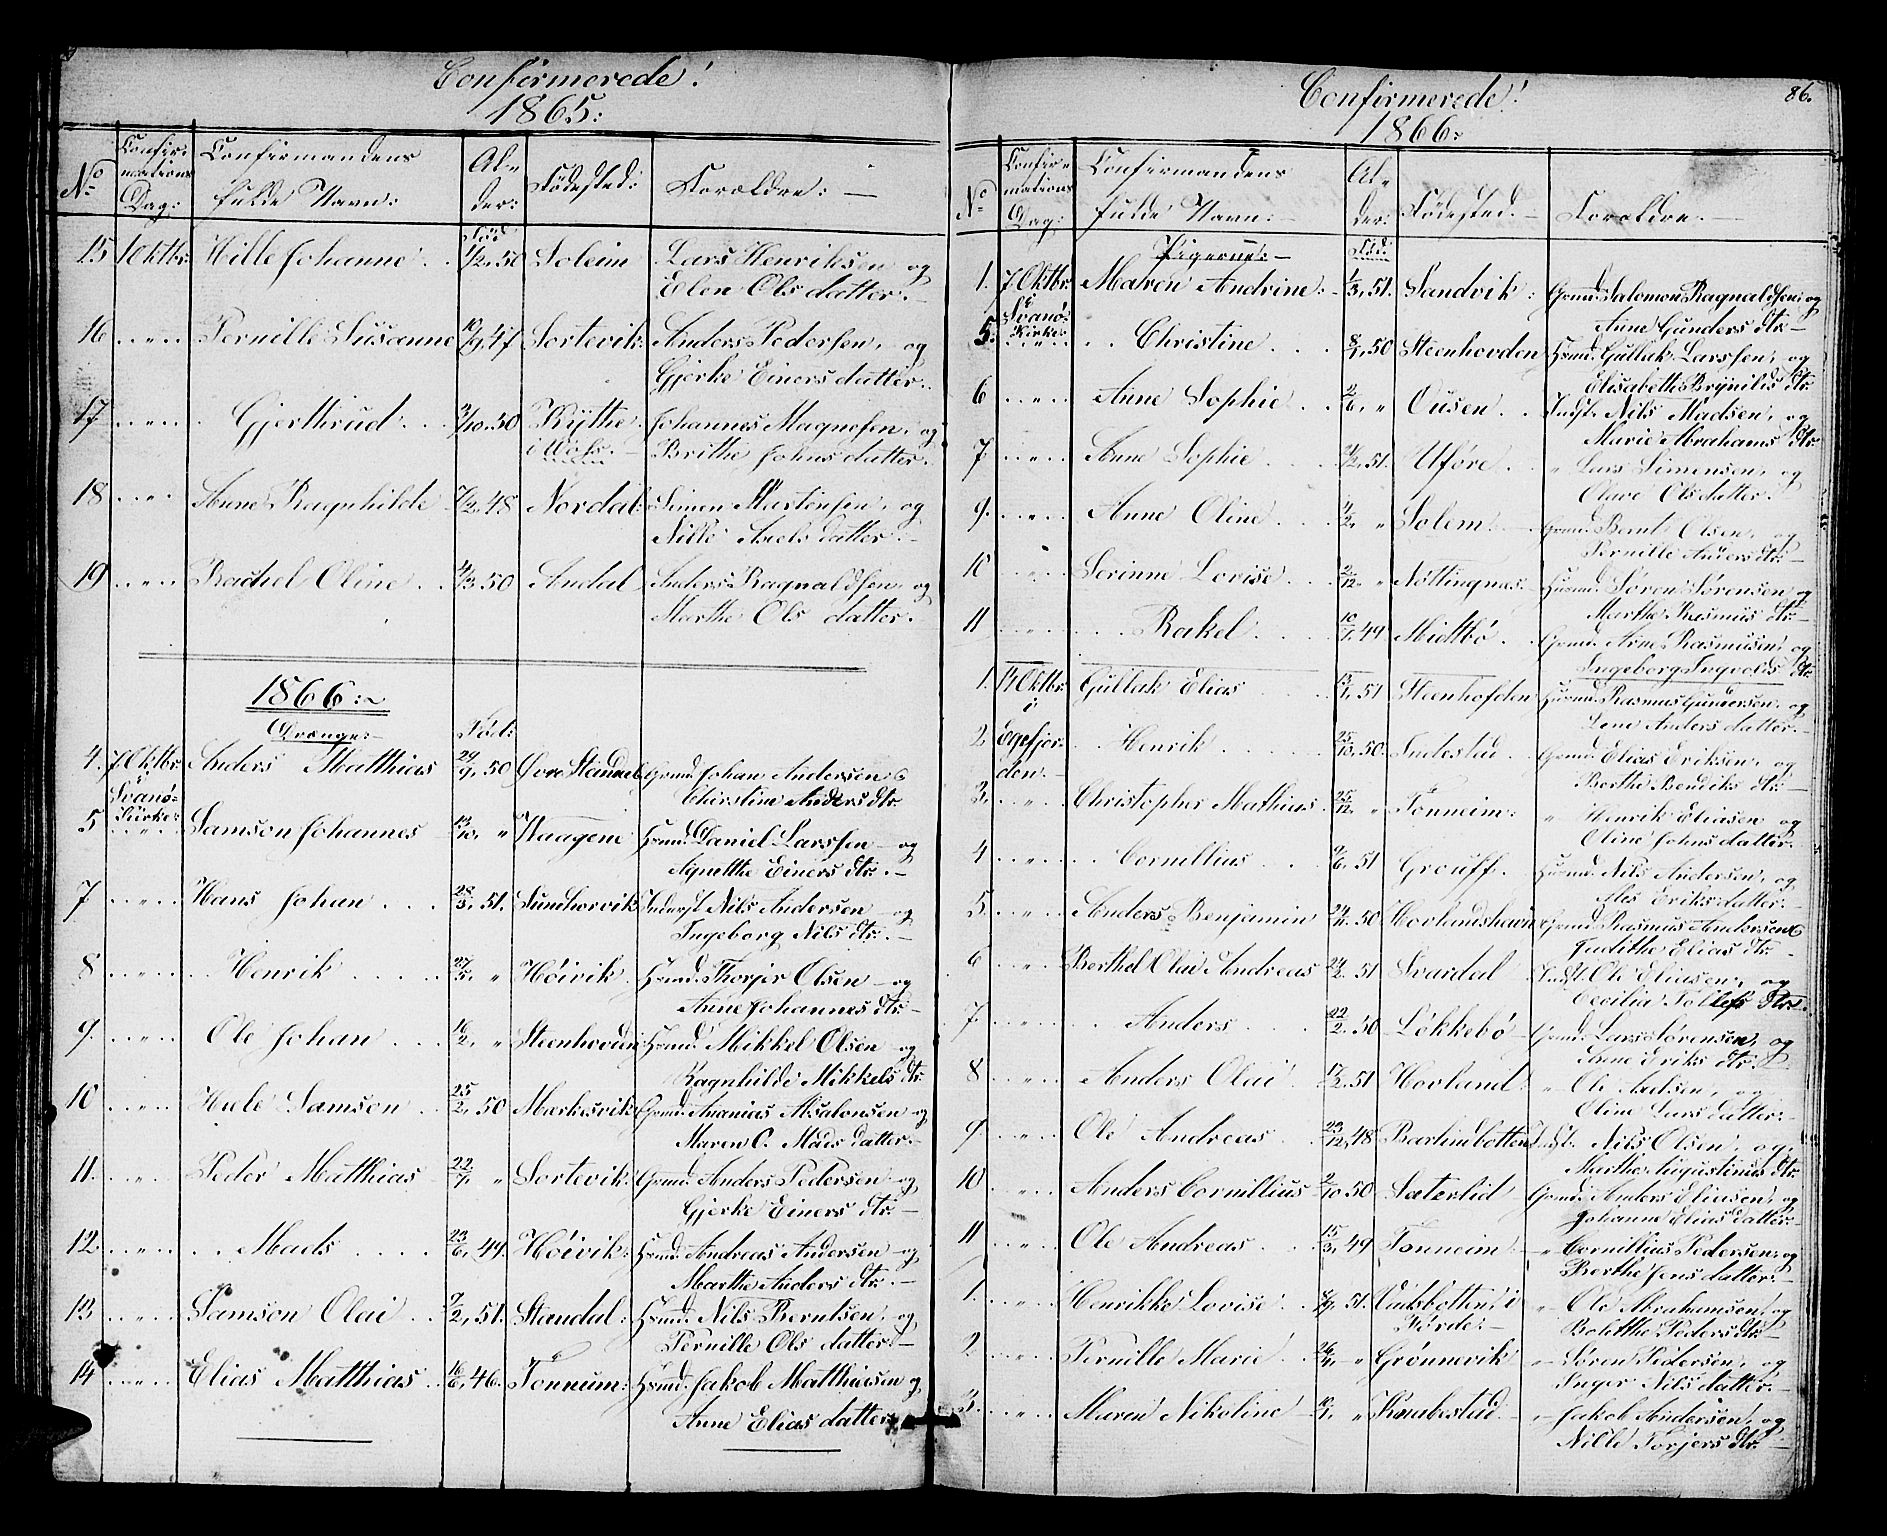 Confirmerede!
1865:
No Confirmations Dag: Confirmandens fulde Navn: Alder: Födested: Forældre: —
Född
15 1 Oktbr. Nille Johanne . . 1/2, 50 Soleim Lars Henriksen og
Elen Ols datter. —
16 . . „ . . Pernille Susanne 10/9, 47 Sortevik: Anders Pedersen, og
Gjerke Einers datter. .
17 . . „ . . Gjerthrud . . . 3/10, 50 Kythe Johannes Magnesen, og
i Woss. — Brithe Johns datter.
18 . . „ . . Anne Ragnhilde 7/2, 48 Nordal: Simen Mortensen, og
Nille Axels datter. —
19 . . „ . . Rachel Oline . . 4/3, 50 Andal Anders Ragnaldsen, og
Marthe Ols datter.
1866:~
Drenge:— Född:
4. 7 Oktbr. Anders Matthias 29/9, 50 Øvre Standal Grmd. Johan Andersen &
Svanö- Kirke: Chirstine Anders dtr.
5 . . „ . . Samson Johannes 13/10, „ Waagene Hrmd. Daniel Larssen — og
Agnethe Einers dtr. —
7 . . „ . . Hans Johan . . . 28/3, 51. Inderst Nils Andersen — og
Ingeborg Nils dtr. —
8 . . „ . . Henrik . . . 27/5, „ Höivik: Hrmd. Thorjer Olsen — og
Anne Johannes dtr —
9. . . „ . . Ole Johan . . . 16/2, „ Steenhovden Hrmd. Mikkel Olsen og
Ragnhilde Mikkels dtr
10 . . „ . . Hule Samson . . 25/2, 50 Mærkesvik Grmd. Ananias Absalonsen og
Maren C. Mads datter. —
11. . . „ . . Peder Matthias 22/7, „ Sortevik: Grmd. Anders Pedersen og
Gjerke Einers dtr. —
12 . . „ . . Mads . . . . 23/6, 49. Höivik: Hrmd. Andreas Andersen og
Marthe Anders dtr. —
13 . . „ . . Samson Olai . . 9/2, 51. Standal: Hrmd. Nils Berntsen, og
Pernille Ols datter! —
14 . . „ . . Elias Matthias . . 16/6, 46. Tonnum: Hrmd. Jakob Matthiasen og
Anne Elias datter
Confirmerede! 86.
1866:
No Confirmations Dag: Confirmandens fulde Navn: — Alder: Födested. — Forældre. —
Pigerne:— Född:
1. 7 Oktbr. Maren Andrine: — 1/3, 51. Sandvik: Grmd. Salomon Ragnaldsen: og
Svanö- Kirke: Anne Gunders dtr —
5. . . „ . . Christine . . . 8/1, 50 Steenhovden Hrmd. Gullak Larssen, og
Elisabeth Brynilds dtr
6 . . „ . . Anne Sophie . . 2/6, „ Ousen . . Indst. Nils Madsen, og
Marie Abrahams dtr.
7. . . „ . . Anne Sophie . . . 51. Uföre . . „ Lars Simensen, og
Olave Ols datter. —
9. . . „ . . Anne Oline . . . 4/2, „ Solem: — Grmd. Bernt Olsen, og
Pernille Anders dtr: —
10 . . „ . . Serinne Lovise . . 2/12, „ Nöttingnæs: Husmd. Sören Sörensen, og
Marthe Rasmus dtr —
11 . . „ . . Rakel . . . . 10/7, 49 Midtbö . . Grmd. Arne Rasmusen, og
Ingeborg Ingvolds dtr
1. 14 Oktbr. Gullak Elias . . . 13/1, 51 Steenhofden Husmd. Rasmus Gundersen, og
i Lene Anders datter. —
2. Eegefjor- Henrik . . . . 25/10, 50. Indestad. Grmd. Elias Eriksen, og
den. — Berthe Bendiks dtr. —
3. . . „ . . Christopher Mathias 25/12, „ Tonneim: „ Henrik Eliasen og
Oline Johns datter.
4 . . „ . . Cornellius . . . 9/6, 51 Grouff. Husmd. Nils Andersen, og
Ales Eriks datter. —
5. . . „ . . Anders Benjamin 24/11, 50 Hovlandshavn Grmd. Rasmus Andersen &
Judithe Elias dtr. —
6 . . „ . . Berthel Olai Andreas 24/2, 51 Svardal Indst. Ole Eliasen, og
Cecilia Tollefs dtr.
7. . . „ . . Anders . . . 22/2, 50 Lökkebö Grmd. Lars Sörensen, og
Anne Eriks dtr. —
8 . . „ . . Anders Olai . . 17/3, 51 Hovland: „ Ole Madsen, og
Oline Lars datter: —
9 . . „ . . Ole Andreas . . . 23/12, 48 Barlindbotten Indst. Nils Olsen, og
Marthe Augustinus dtr.
10 . . „ . . Anders Cornillius 2/10, 50 Sæterlid Grmd. Anders Eliasen, og
Johanne Elias datter: —
11 . . „ . . Ole Andreas . . . 15/3, 49 Tonneim: — „ Cornillius Pedersen, og
Berthe Jens datter: —
1. . . „ . . Henrikke Lovise . . 51. Vadsbotten i „ Ole Abrahamsen, og
Förde: — Bolethe Peders dtr —
2 . . „ . . Pernille Marie . . „ Grönnevik „ Sören Pedersen, og
Inger Nils datter. —
3. . . „ . . Maren Nikoline — „ Knabestad. „ Jakob Andersen, og
Nille Torjers dtr. —